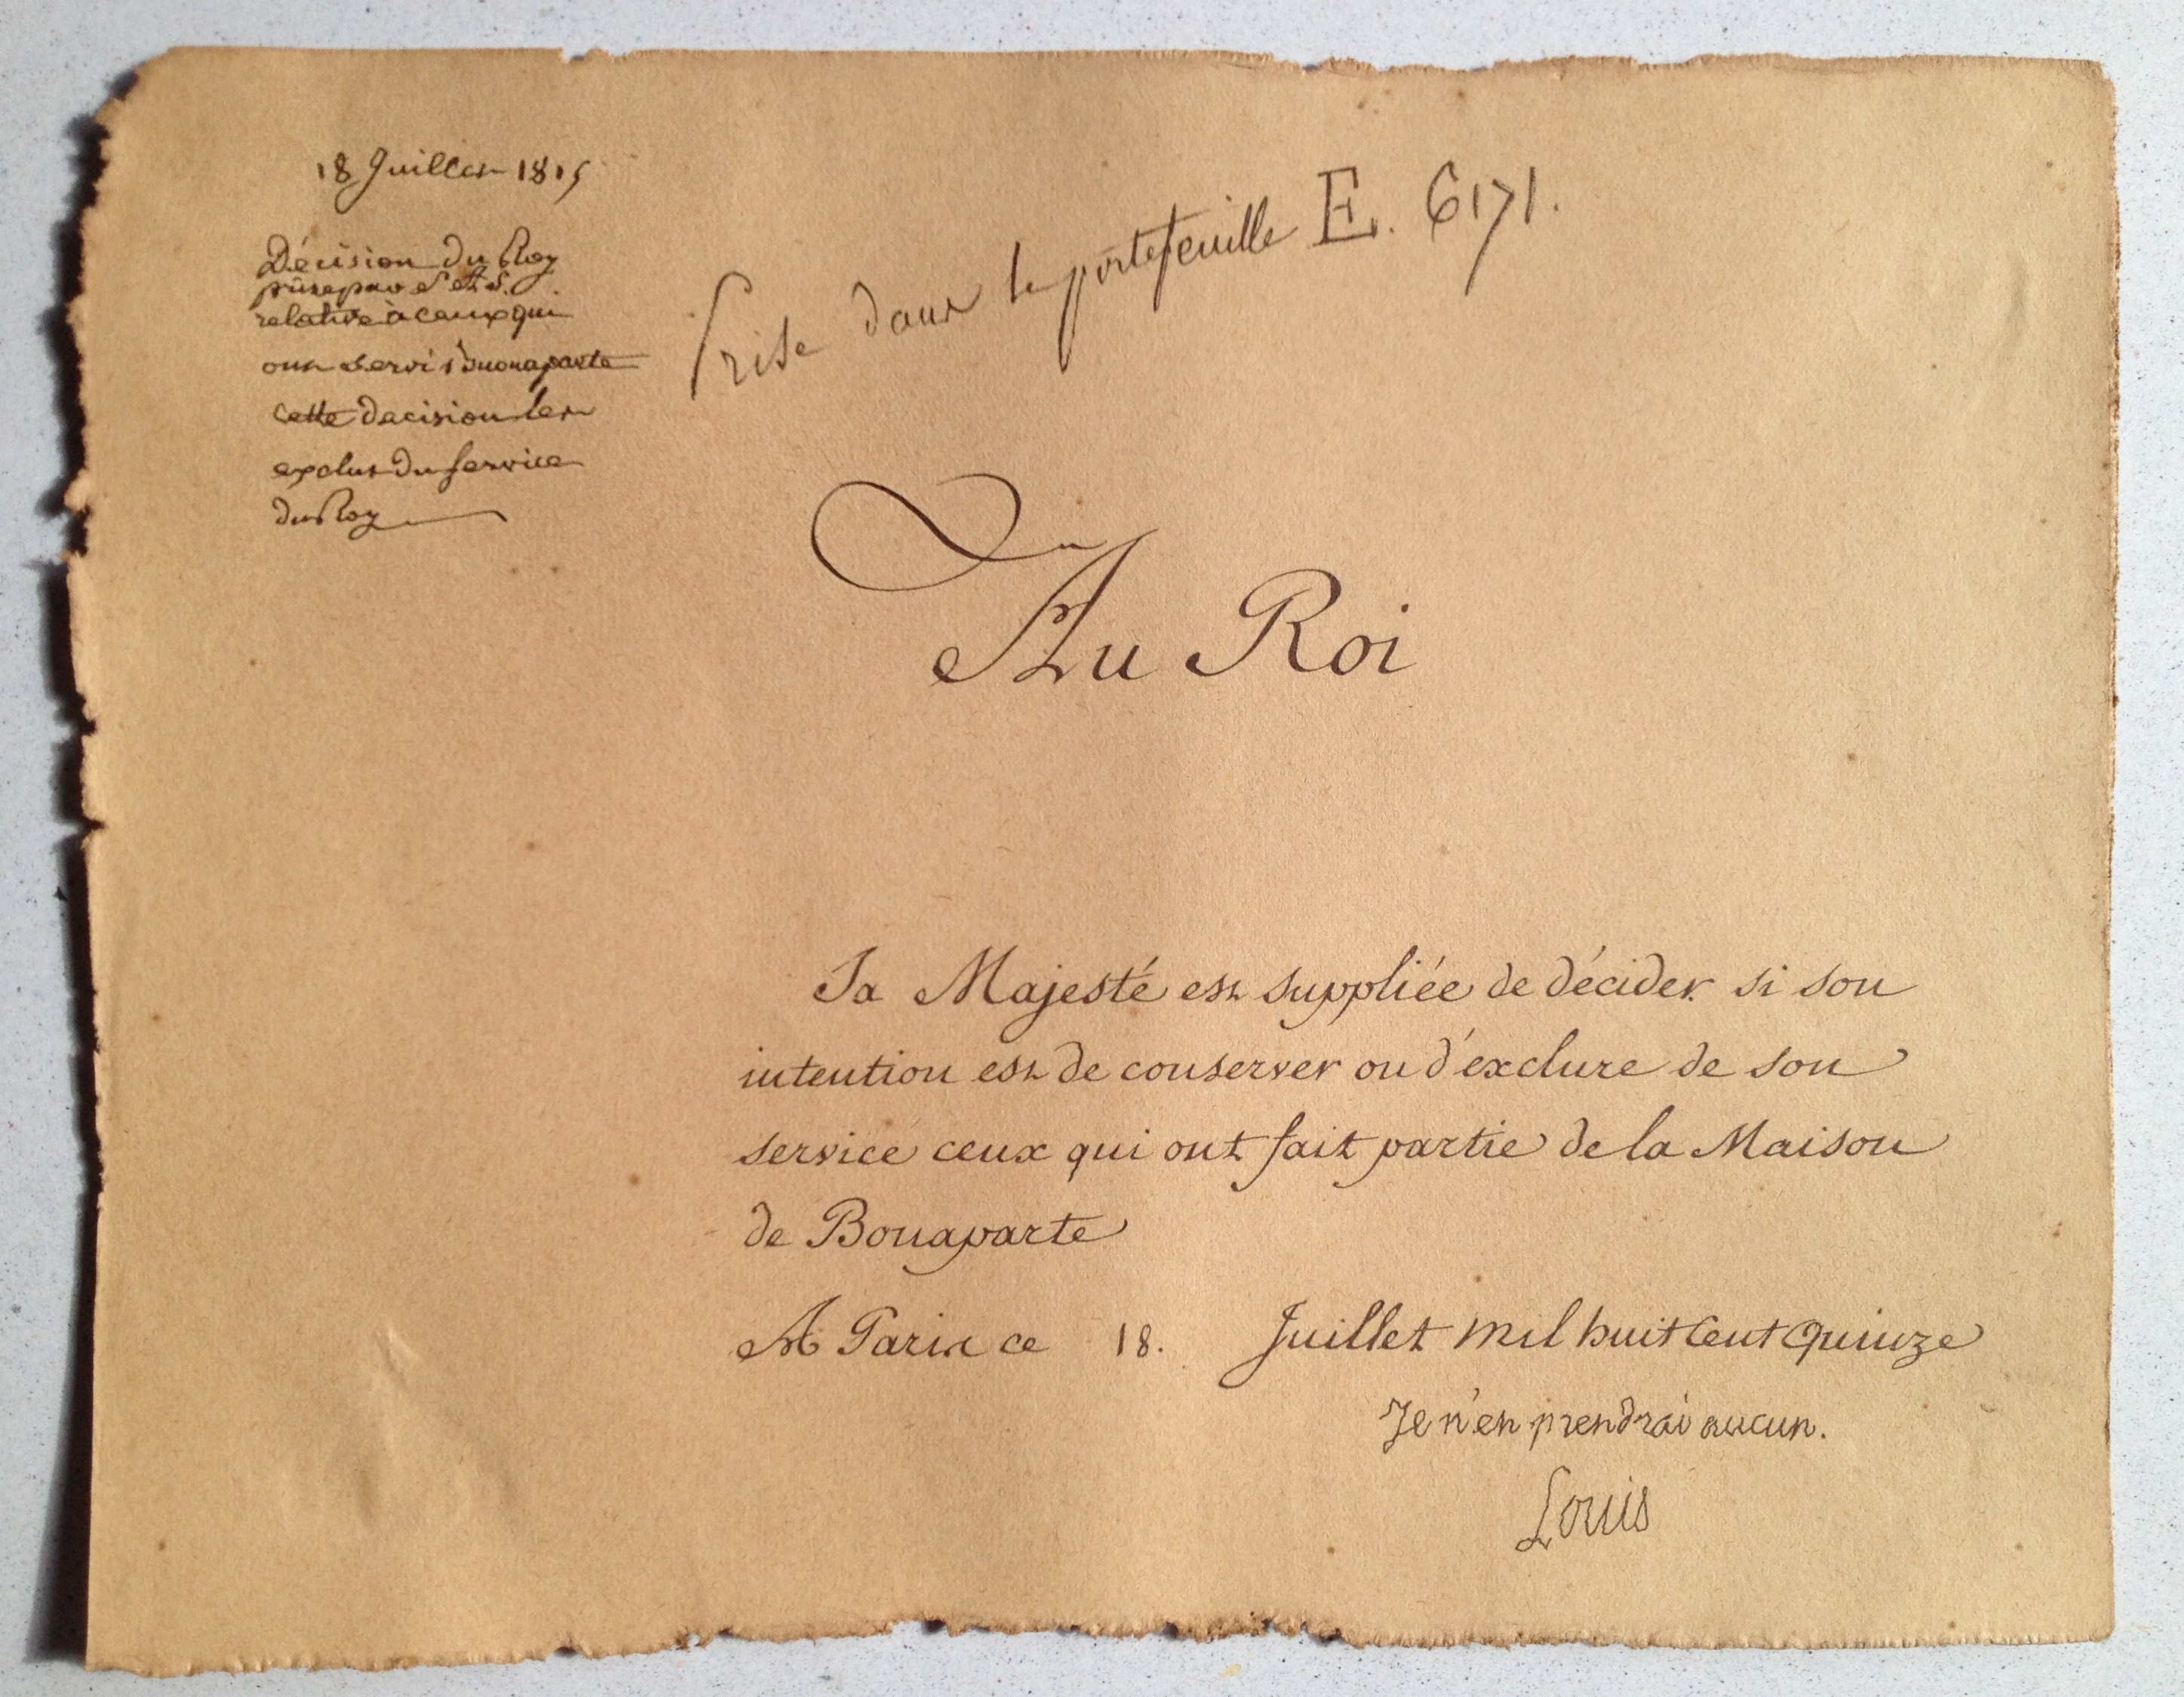 18 Juillet 1815
Décision du Roy
prise par S. A. S.
relative à ceux qui
ont servi Buonaparte
cette decision les
exclut du service
du Roy
Prise dans le portefeuille E. 6171.
Au Roi
Sa Majesté est suppliée de décider si son
intention est de conserver ou d'exclure de son
service ceux qui ont fait partie de la Maison
de Bonaparte
A Paris ce 18. Juillet mil huit Cent Quinze
Je n'en prendrai aucun.
Louis